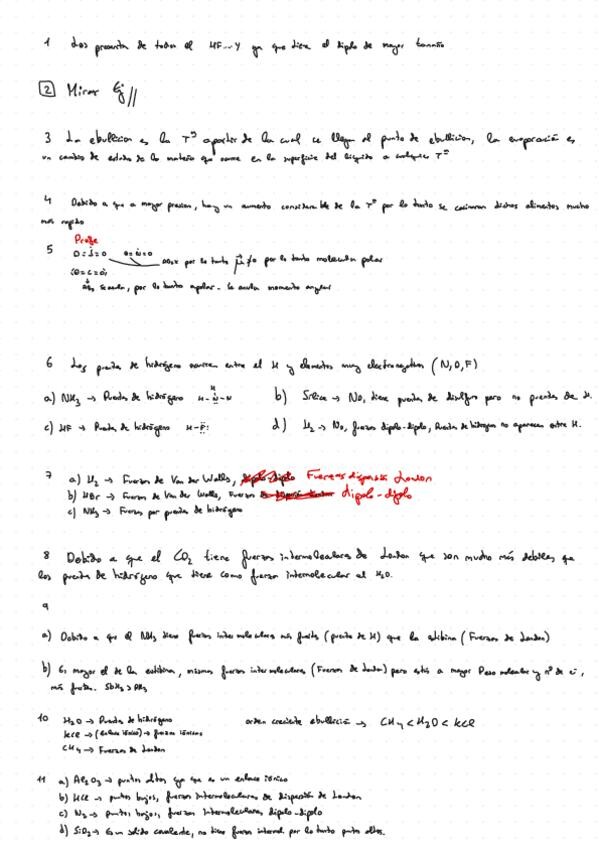 1 Los presenta de todos el HF...Y ya que tiene el dipolo de mayor tamaño
2 Mirar Ej //
3 La ebullicion es la Tª apartir de la cual se llega al punto de ebullicion, la evaporación es
un cambio de estado de la materia que ocurre en la superficie del liquido a cualquier Tª
4 Debido a que a mayor presion, hay un aumento considerable de la Tª por lo tanto se cocinaran dichos alimentos mucho
más rapido
5 Profe
por lo tanto μ≠0 por lo tanto molecula polar
se anula, por lo tanto apolar - Se anula momento angular
6 Los puentes de hidrógeno ocurren entre el H y elementos muy electronegativos (N,O,F)
a) NH3 → Puentes de hidrógeno b) → No, tiene puentes de pero no puentes de H.
c) HF → Puentes de hidrógeno H-F: d) H2 → No, fuerzas dipolo-dipolo, Puentes de hidrogeno no aparecen entre H.
7 a) H2 → Fuerzas de Van der Walls, Fuerzas dispersión London
b) HBr → Fuerzas de Van der Walls, Fuerzas dipolo-dipolo
c) NH3 → Fuerzas por puentes de hidrógeno
8 Debido a que el CO2 tiene fuerzas intermoleculares de London que son mucho más debiles que
los puentes de hidrógeno que tiene como fuerza intermolecular el H2O.
9
a) Debido a que el NH3 tiene fuerzas intermoleculares más fuertes (puentes de H) que la estibina (Fuerzas de London)
b) Es mayor el de la estibina, mismas fuerzas intermoleculares (Fuerzas de London) pero esta a mayor Peso molecular y nº de e-,
más fuertes. SbH3 > PH3
10 H2O → Puentes de hidrógeno orden creciente ebullición → CH4 < H2O < KCl
KCl → (enlace iónico) → fuerzas iónicas
CH4 → Fuerzas de London
11 a) Al2O3 → puntos altos ya que es un enlace iónico
b) HCl → puntos bajos, fuerzas intermoleculares de dispersión de London
c) N2 → puntos bajos, fuerzas intermoleculares dipolo-dipolo
d) SiO2 → Es un solido covalente, no tiene fuerzas intermol. por lo tanto puntos altos.